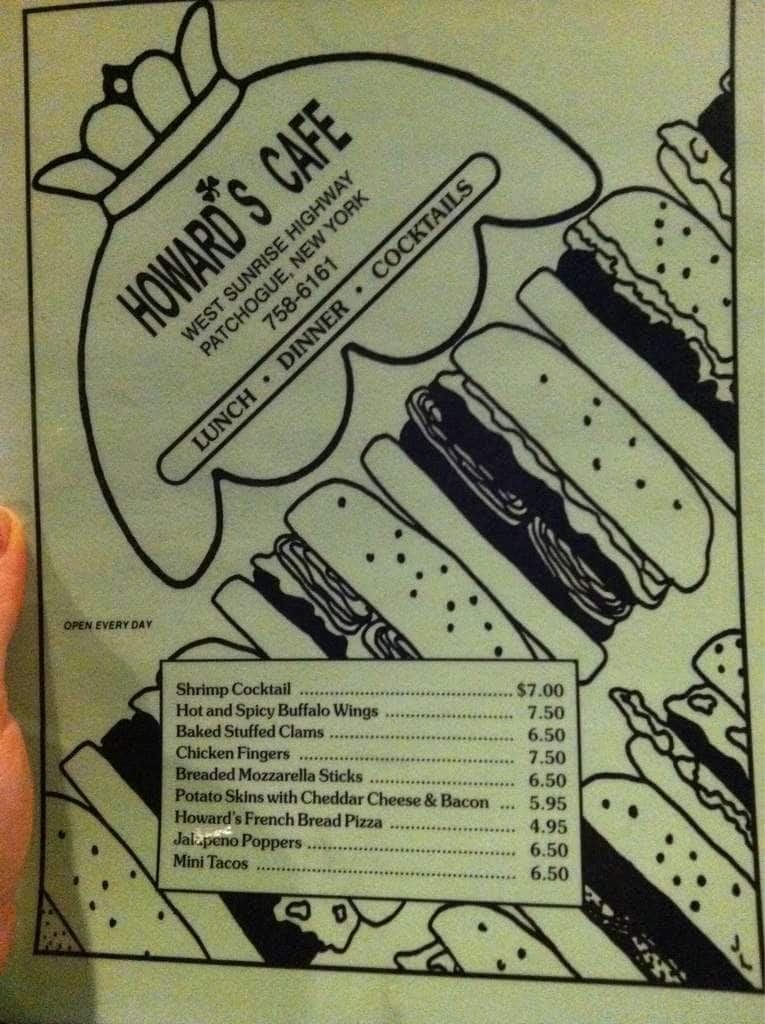 HOWARD'S CAFE
WEST SUNRISE HIGHWAY
PATCHOGUE, NEW YORK
758-6161
LUNCH • DINNER • COCKTAILS
OPEN EVERY DAY
Shrimp Cocktail ........................................ $7.00
Hot and Spicy Buffalo Wings ........................ 7.50
Baked Stuffed Clams .................................. 6.50
Chicken Fingers ........................................ 7.50
Breaded Mozzarella Sticks ........................... 6.50
Potato Skins with Cheddar Cheese & Bacon ... 5.95
Howard's French Bread Pizza ....................... 4.95
Jalapeno Poppers ...................................... 6.50
Mini Tacos .............................................. 6.50
JL